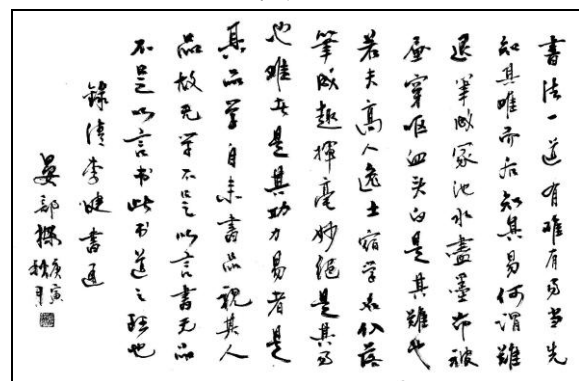 書法一道有難有易当先
知其難而后知其易何謂難
退筆成冢池水盡墨布被
画穿嘔血头白是其難也
若夫高人逸士宿学名公落
筆成趣揮毫妙絕是其易
也難者是其功力易者是
其品学自来書品視其人
品故无学不足以言書无品
不足以言书此书道之也
錄清李健書通
庚寅
秋月